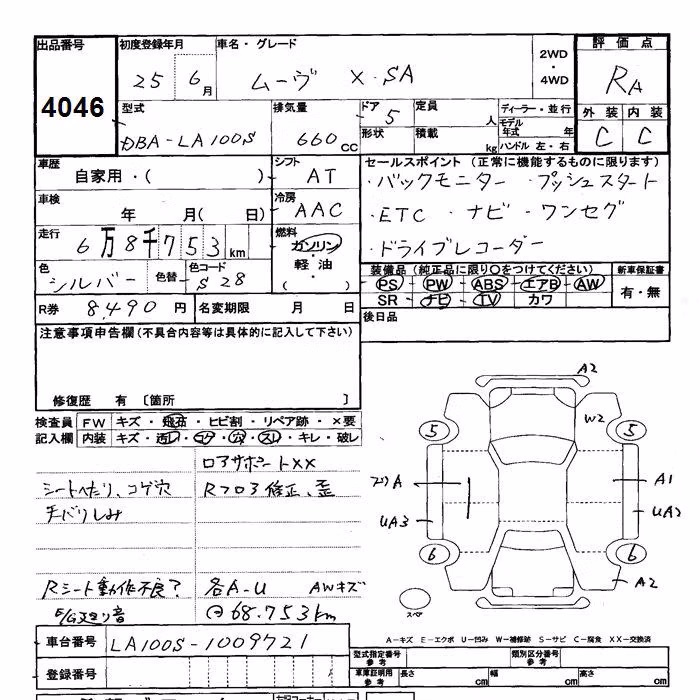 出品番号 初度登録年月 車名・グレード 2WD・4WD 評価点
4046 25 6月 ムーヴ X・SA RA
型式 排気量 ドア 定員 ディーラー・並行 外装 内装
DBA-LA100S 660cc 5 人 モデル年式 年 C C
形状 積載 kg ハンドル 左・右
車歴 シフト セールスポイント (正常に機能するものに限ります)
自家用・( ) AT ・バックモニター ・プッシュスタート
車検 冷房
年 月( 日) AAC ・ETC ・ナビ ・ワンセグ
走行 燃料
6万8千753km ガソリン・軽油・( ) ・ドライブレコーダー
色 色替 色コード 装備品 (純正品に限り○をつけてください) 新車保証書
シルバー S28 PS PW ABS エアB AW 有・無
SR ナビ TV カワ
R券 8,490円 名変期限 月 日 後日品
注意事項申告欄 (不具合内容等は具体的に記入して下さい)
修復歴 有 〔箇所 〕
検査員 FW キズ・飛石・ヒビ割・リペア跡・×要
記入欄 内装 キズ・汚レ・コゲ・穴・スレ・キレ・破レ
ロアサポートXX
シートへたり、コゲ穴 Rフロア修正、歪
Rシート動作不良? 各A-U AWキズ
68.753km
A2
W2
5 5
A A1
UA3 UA2
6 6
A2
スペア
A-キズ E-エクボ U-凹み W-補修跡 S-サビ C-腐食 XX-交換済
車台番号 LA100S-1009721
型式指定番号 参考 類別区分番号 参考
登録番号 車庫証明用 参考 長さ cm 幅 cm 高さ cm